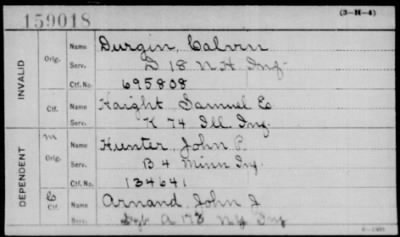 159018
(3-H-4)
INVALID
Orig.
Name Durgin, Calvin
Serv. D 18 N.H. Inf.
Ctf. No. 695808
Ctf.
Name Haight, Samuel E
Serv. K 74 Ill. Inf.
DEPENDENT
m
Orig.
Name Hunter, John P.
Serv. B 4 Minn Inf.
Ctf. No. 134641
C
Ctf.
Name Arnand, John J
Serv. A 178 NY Inf